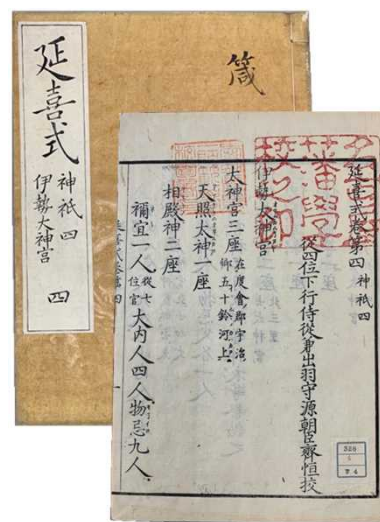 箴
延喜式
神祇 四
伊勢大神宮
四
延喜式卷第四 神祇四
從四位下行侍從兼出羽守源朝臣齊恒挍
伊勢大神宮
太神宮三座 在度會郡宇治
郷五十鈴河上
天照太神一座
相殿神二座
禰宜一人 從七
位官 大内人四人物忌九人